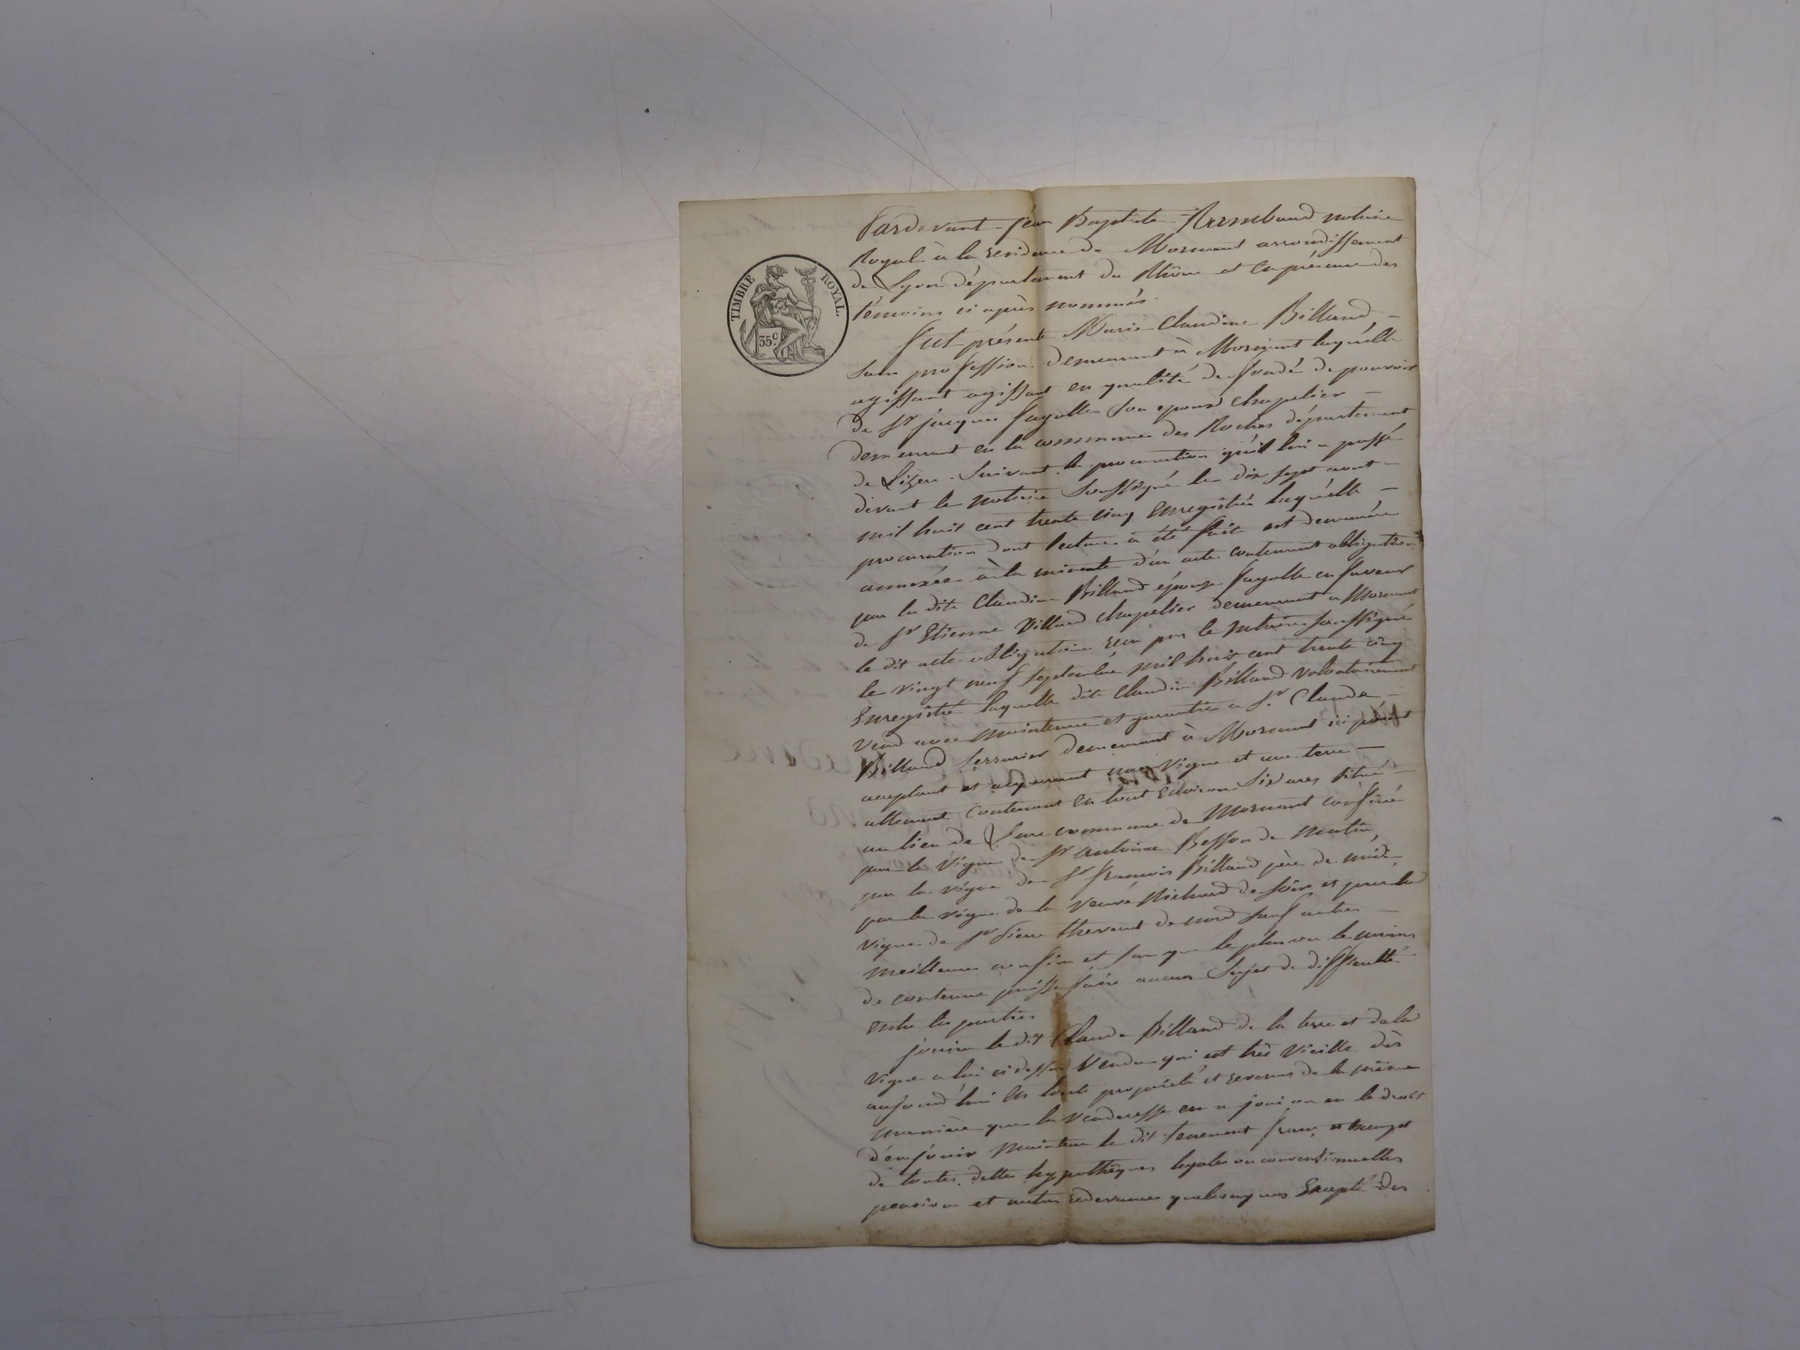 TIMBRE ROYAL.
35 c.
Pardevant Jean Baptiste notaire
Royal à la résidence de Mornant arrondissement
de Lyon département du Rhône et en présence des
témoins ci après nommés.
Fut présente Marie Claudine Billand
sans profession demeurant à Mornant laquelle
agissant agissant en qualité de fondé de pouvoir
de Sr jacques fayolle son epoux chapelier
demeurant en la commune des Roches département
de Lizere. Suivant la procuration qu'il lui a passé
devant le notaire soussigné le dix sept aout
mil huit cent trente cinq Enregistrée laquelle
procuration dont lecture a été faite est demeurée
annexée à la minute d'un acte contenant obligation
par la dite Claudine Billand épouse fayolle en faveur
de Sr Etienne Villard chapelier demeurant a Mornant
le dit acte obligatoire reçu par le notaire soussigné
le vingt neuf septembre mil huit cent trente cinq
Enregistré laquelle dite Claudine Billand volontairement
vend avec maintenue et garantie a Sr Claude
Billand serrurier demeurant à Mornant ici présent
acceptant et acquerant une vigne et une terre
attenant contenant en tout Environ six ares situé
au lieu de commune de Mornant confiné
par la vigne de Sr antoine Besson de matin,
par la vigne de Sr françois Billand père de midi
par la vigne de la veuve Richard de soir et par la
vigne de Sr pierre thevenet de nord sauf autres
meilleures confins et sans que le plus ou le moins
de contenue puisse faire aucun sujet de difficulté
entre les parties
jouira le dit Claude Billand de la terre et de la
vigne a lui ci dessus vendue qui est très vieille dès
aujourd'hui en toute propriété et revenus de la même
manière que la venderesse en a joui ou eu le droit
d'en jouir maintenu le dit tenement franc et exempt
de toutes dettes hypothèques legales ou conventionnelles
pension et autres redevances quelconques Excepté des